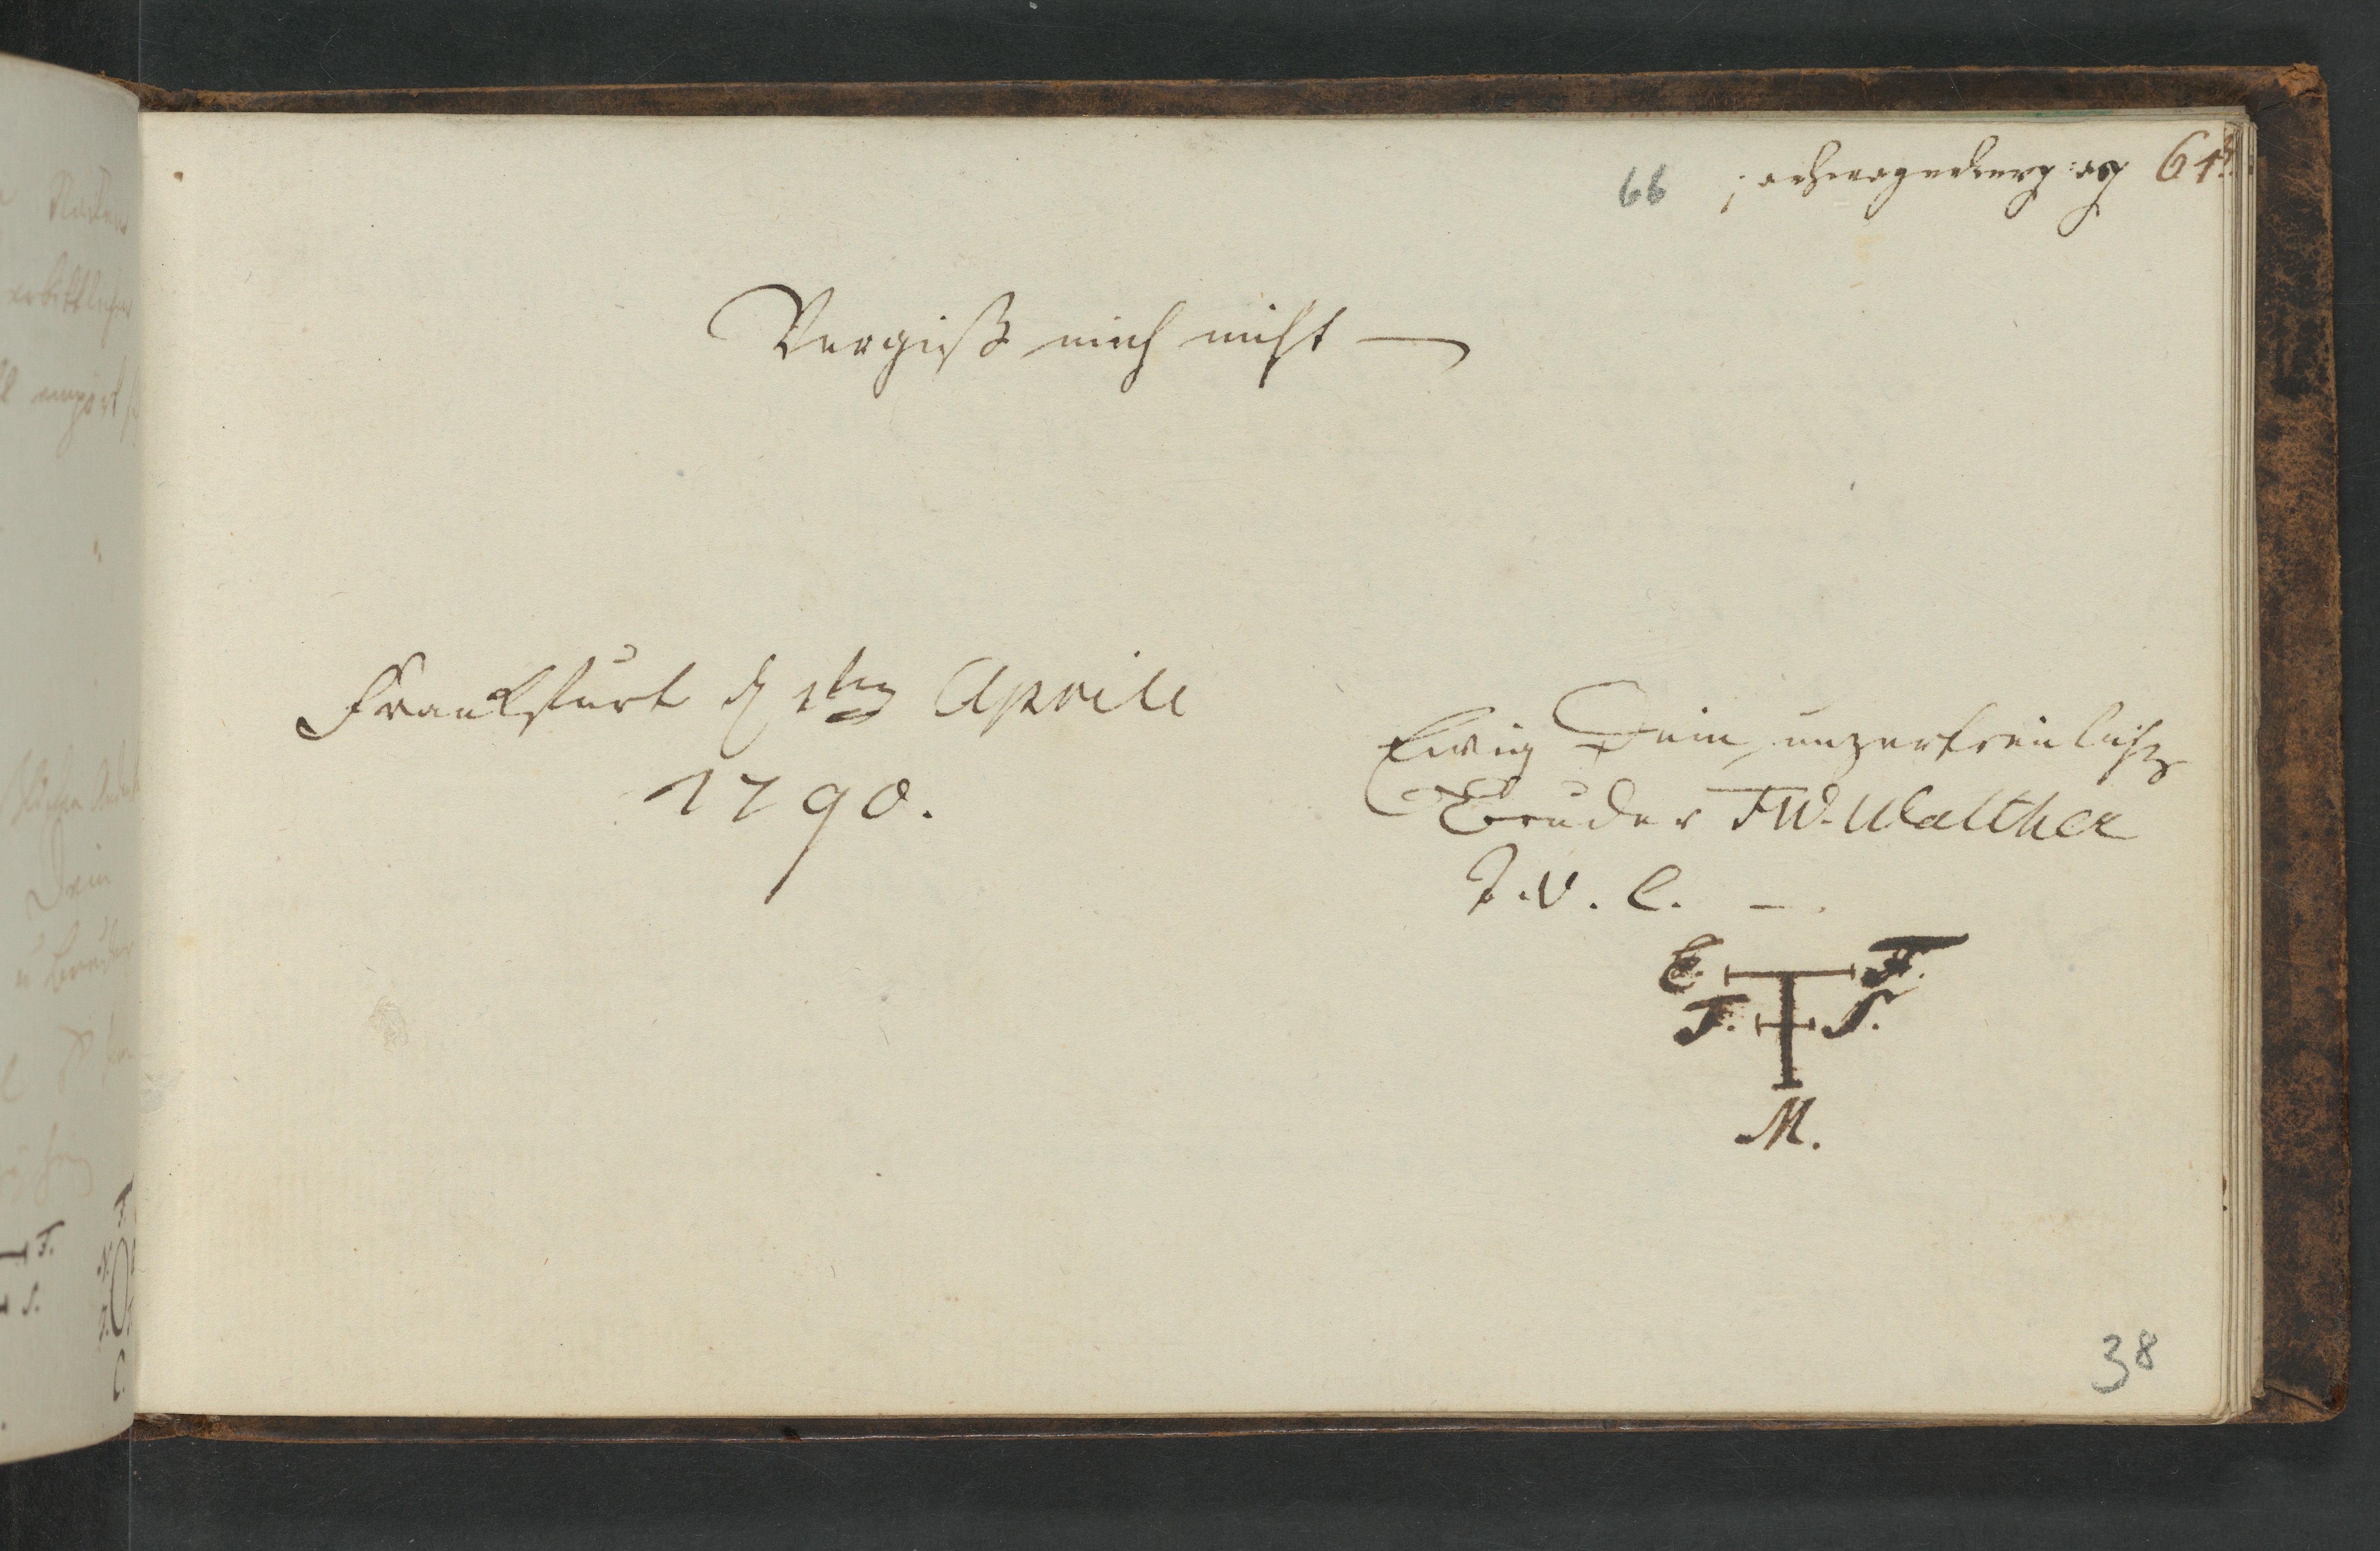 66
64
Vergiß mich nicht —
Frankfurt d 1ten Aprill
1790.
Ewig Dein unzertrenlicher
Bruder FW. Walther
J. V. C. —
E. F.
F. S.
M.
38